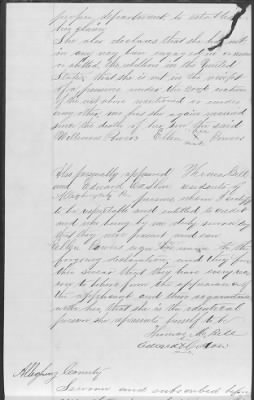 proper department to establish
this claim
She also declares that she has not
in any way been engaged in or aided
or abetted, the rebellion in the United
States, that she is not in the receipt
of a pension under the 2nd section
of the act above mentioned or under
any other, nor has she again married
since the death of her son the said
William Powers Ellen her Powers
mark
Also personally appeared Thomas Bell
and Edward residents of
Allegheny persons whom I certify
to be respectable and entitled to credit
and who being by me duly sworn say
that they were present and saw
Ellen Powers sign her mark to the
foregoing declaration, and they fur-
ther swear that they have every rea-
son to believe from the appearance of
the applicant and their acquaintance
with her, that she is the identical
person she represents herself to be
Thomas Bell
Edward
Allegheny County
Sworn and subscribed before